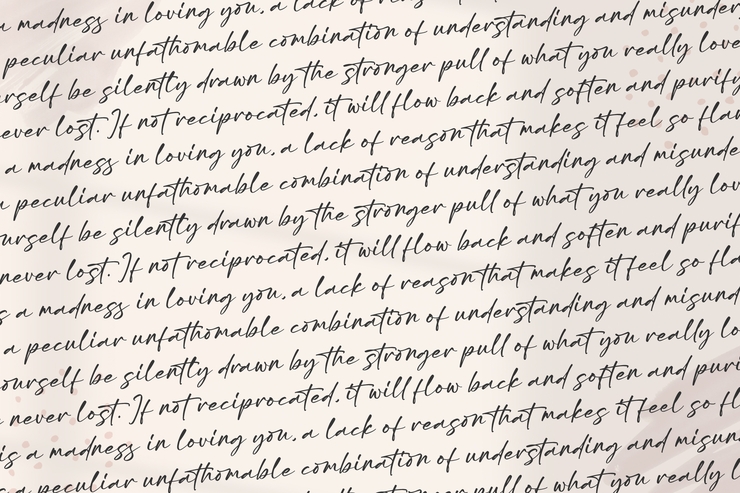 madness in loving you, a lack of
peculiar unfathomable combination of understanding and misunder
urself be silently drawn by the stronger pull of what you really love
ever lost. If not reciprocated, it will flow back and soften and purify
a madness in loving you, a lack of reason that makes it feel so flaw
peculiar unfathomable combination of understanding and misunde
ourself be silently drawn by the stronger pull of what you really lov
never lost. If not reciprocated, it will flow back and soften and purif
s a madness in loving you, a lack of reason that makes it feel so fla
a peculiar unfathomable combination of understanding and misund
ourself be silently drawn by the stronger pull of what you really lo
never lost. If not reciprocated, it will flow back and soften and puri
is a madness in loving you, a lack of reason that makes it feel so fl
a peculiar unfathomable combination of understanding and misun
the stronger pull of what you really l